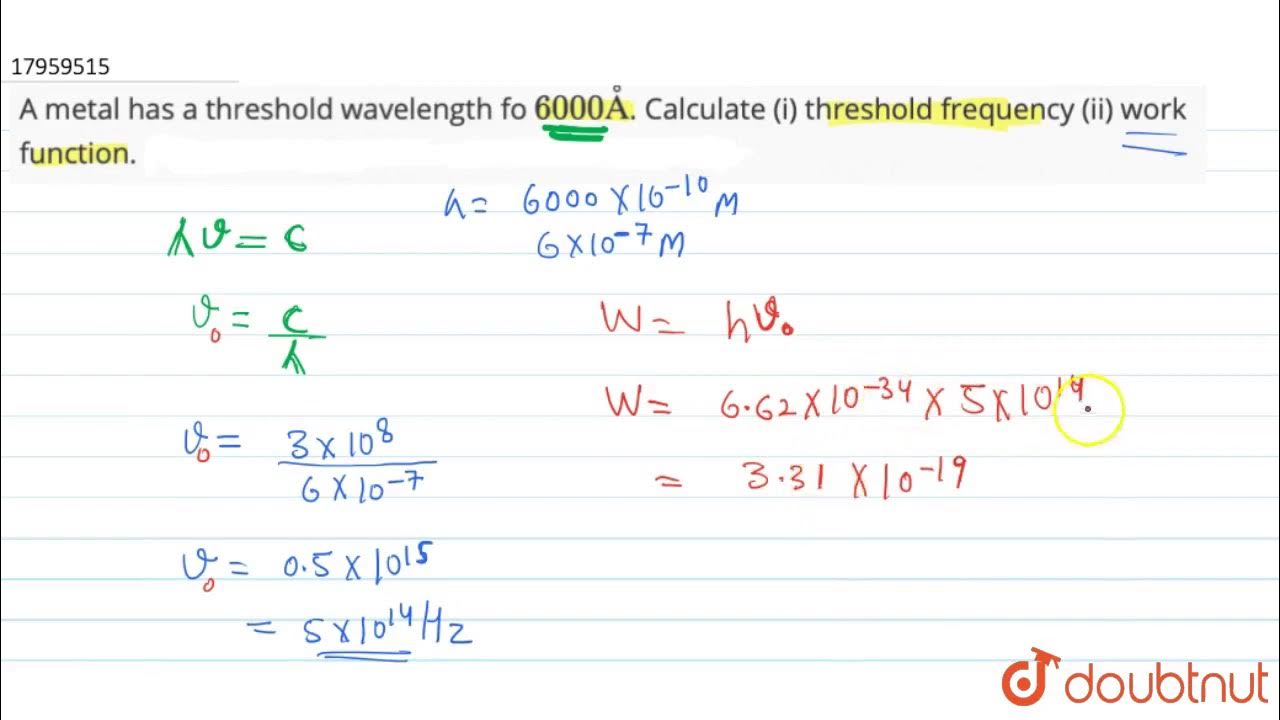 17959515
A metal has a threshold wavelength fo 6000Å. Calculate (i) threshold frequency (ii) work
function.
λ = 6000 × 10⁻¹⁰ M
6 × 10⁻⁷ M
λν = c
ν₀ = c/λ
ν₀ = 3 × 10⁸ / 6 × 10⁻⁷
ν₀ = 0.5 × 10¹⁵
= 5 × 10¹⁴ Hz
W = hν₀
W = 6.62 × 10⁻³⁴ × 5 × 10¹⁴
= 3.31 × 10⁻¹⁹
doubtnut